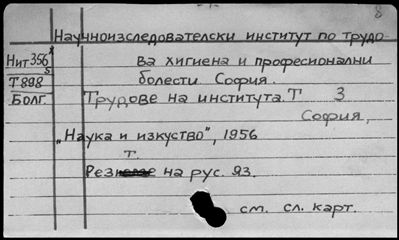 8
Научноизследователски институт по трудо-
Нит 356 ва хигиена и професионални
Т898 болести София.
Болг. Трудове на института. Т 3
София,
„Наука и изкуство", 1956
т.
Рез на рус. яз.
см. сл. карт.